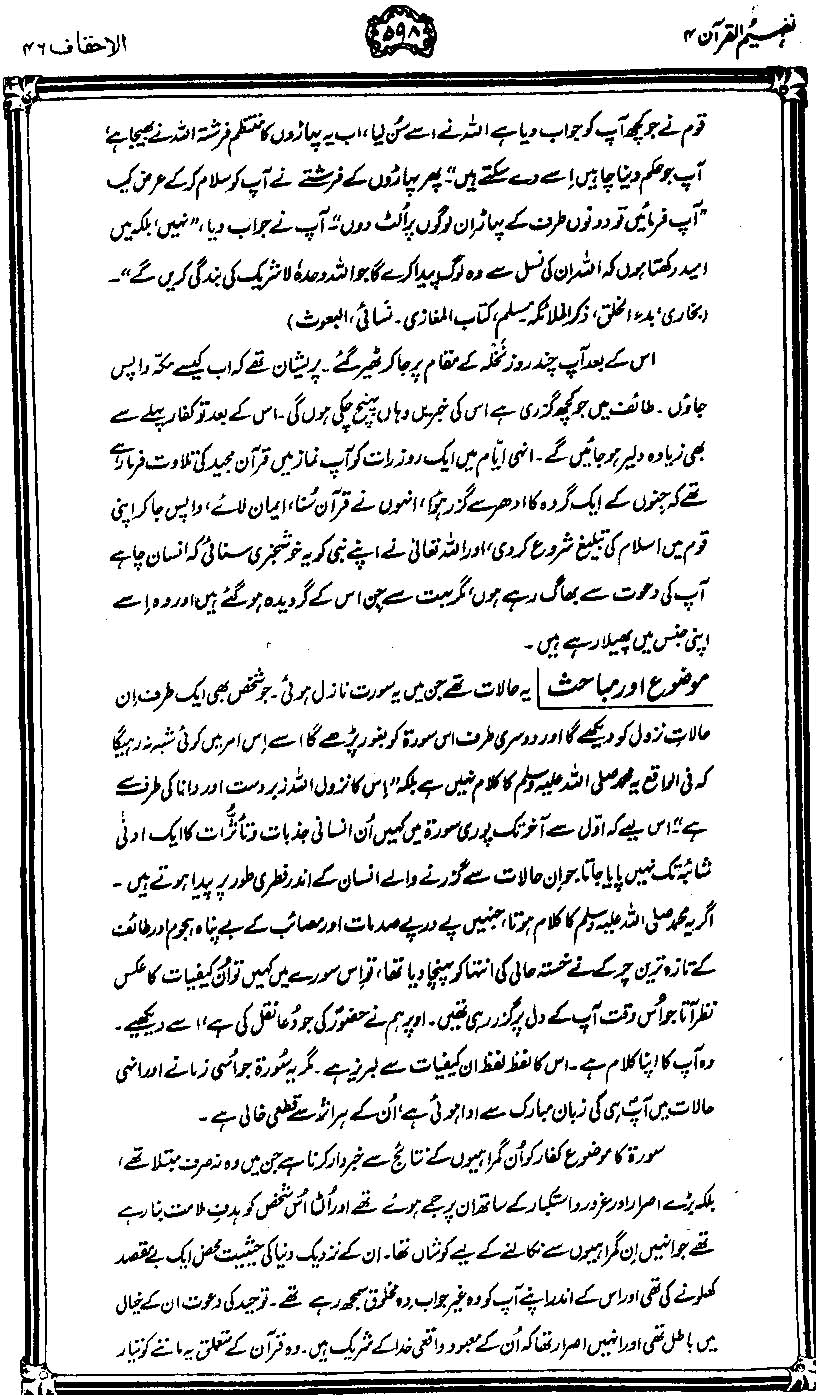 تفہیم القرآن ۴
۵۹۸
الاحقاف ۴۶
قوم نے جو کچھ آپ کو جواب دیا ہے اللہ نے اسے سُن لیا، اب یہ پہاڑوں کا منتظم فرشتہ اللہ نے بھیجا ہے،
آپ جو حکم دینا چاہیں اِسے دے سکتے ہیں"۔ پھر پہاڑوں کے فرشتے نے آپ کو سلام کر کے عرض کیا
"آپ فرمائیں تو دونوں طرف کے پہاڑ ان لوگوں پر اُلٹ دوں"۔ آپ نے جواب دیا، "نہیں، بلکہ میں
امید رکھتا ہوں کہ اللہ ان کی نسل سے وہ لوگ پیدا کرے گا جو اللہ وحدہٗ لاشریک کی بندگی کریں گے"۔
(بخاری، بدء الخلق، ذکر الملائکہ۔ مسلم، کتاب المغازی۔ نسائی، البعوث)
اس کے بعد آپ چند روز نخلہ کے مقام پر جا کر ٹھیر گئے۔ پریشان تھے کہ اب کیسے مکہ واپس
جاؤں۔ طائف میں جو کچھ گزری ہے اس کی خبریں وہاں پہنچ چکی ہوں گی۔ اس کے بعد تو کفار پہلے سے
بھی زیادہ دلیر ہو جائیں گے۔ انہی ایّام میں ایک روز رات کو آپ نماز میں قرآن مجید کی تلاوت فرما رہے
تھے کہ جنوں کے ایک گروہ کا ادھر سے گزر ہوا، انہوں نے قرآن سُنا، ایمان لائے، واپس جا کر اپنی
قوم میں اسلام کی تبلیغ شروع کر دی، اور اللہ تعالیٰ نے اپنے نبی کو یہ خوشخبری سنائی کہ انسان چاہے
آپ کی دعوت سے بھاگ رہے ہوں، مگر بہت سے جن اس کے گرویدہ ہو گئے ہیں اور وہ اِسے
اپنی جنس میں پھیلا رہے ہیں۔
موضوع اور مباحث یہ حالات تھے جن میں یہ سورت نازل ہوئی۔ جو شخص بھی ایک طرف اِن
حالاتِ نزول کو دیکھے گا اور دوسری طرف اس سورۃ کو بغور پڑھے گا اسے اِس امر میں کوئی شبہ نہ رہیگا
کہ فی الواقع یہ محمد صلی اللہ علیہ وسلم کا کلام نہیں ہے بلکہ "اِس کا نزول اللہ زبردست اور دانا کی طرف سے
ہے"۔ اس لیے کہ اوّل سے آخر تک پوری سورۃ میں کہیں اُن انسانی جذبات و تاثّرات کا ایک ادنیٰ
شائبہ تک نہیں پایا جاتا جو ان حالات سے گزرنے والے انسان کے اندر فطری طور پر پیدا ہوتے ہیں۔
اگر یہ محمد صلی اللہ علیہ وسلم کا کلام ہوتا، جنہیں پے در پے صدمات اور مصائب کے بے پناہ ہجوم اور طائف
کے تازہ ترین چرکے نے خستہ حالی کی انتہا کو پہنچا دیا تھا، تو اِس سورے میں کہیں تو اُن کیفیات کا عکس
نظر آتا جو اُس وقت آپ کے دل پر گزر رہی تھیں۔ اوپر ہم نے حضورؐ کی جو دُعا نقل کی ہے اسے دیکھیے۔
وہ آپ کا اپنا کلام ہے۔ اس کا لفظ لفظ ان کیفیات سے لبریز ہے۔ مگر یہ سُورۃ جو اُسی زمانے اور انہی
حالات میں آپؐ ہی کی زبان مبارک سے ادا ہوئی ہے، اُن کے ہر اثر سے قطعی خالی ہے۔
سورۃ کا موضوع کفار کو اُن گمراہیوں کے نتائج سے خبردار کرنا ہے جن میں وہ نہ صرف مبتلا تھے،
بلکہ بڑے اصرار اور غرور و استکبار کے ساتھ ان پر جمے ہوئے تھے اور اُلٹا اُس شخص کو ہدفِ ملامت بنا رہے
تھے جو انہیں اِن گمراہیوں سے نکالنے کے لیے کوشاں تھا۔ ان کے نزدیک دنیا کی حیثیت محض ایک بے مقصد
کھلونے کی تھی اور اس کے اندر اپنے آپ کو وہ غیر جواب دہ مخلوق سمجھ رہے تھے۔ توحید کی دعوت ان کے خیال
میں باطل تھی اور انہیں اصرار تھا کہ اُن کے معبود واقعی خدا کے شریک ہیں۔ وہ قرآن کے متعلق یہ ماننے کو تیار